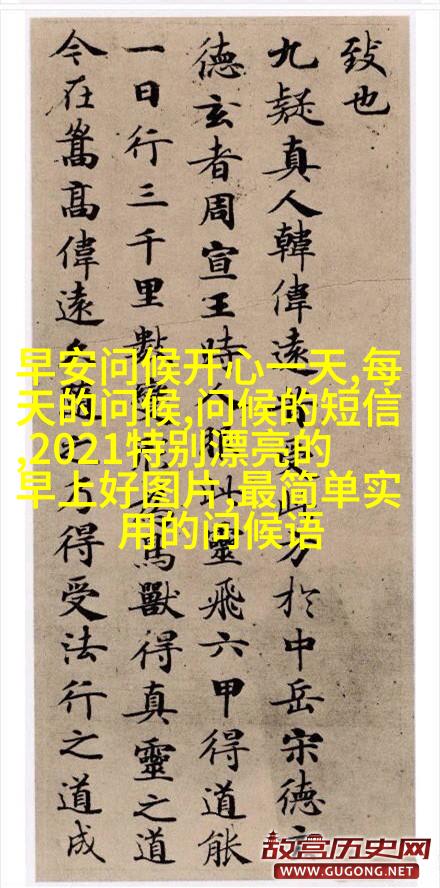 致也
九疑真人韓偉遠昔受此方於中岳宋德玄
德玄者周宣王時人服此靈飛六甲得道能
一日行三千里數變形為鳥獸得真靈之道
今在嵩高偉遠得受法行之道成
早安问候开心一天,每
天的问候,问候的短信
,2021特别漂亮的
早上好图片,最简单实
用的问候语
故宫历史网
WWW.GUGONG.NET